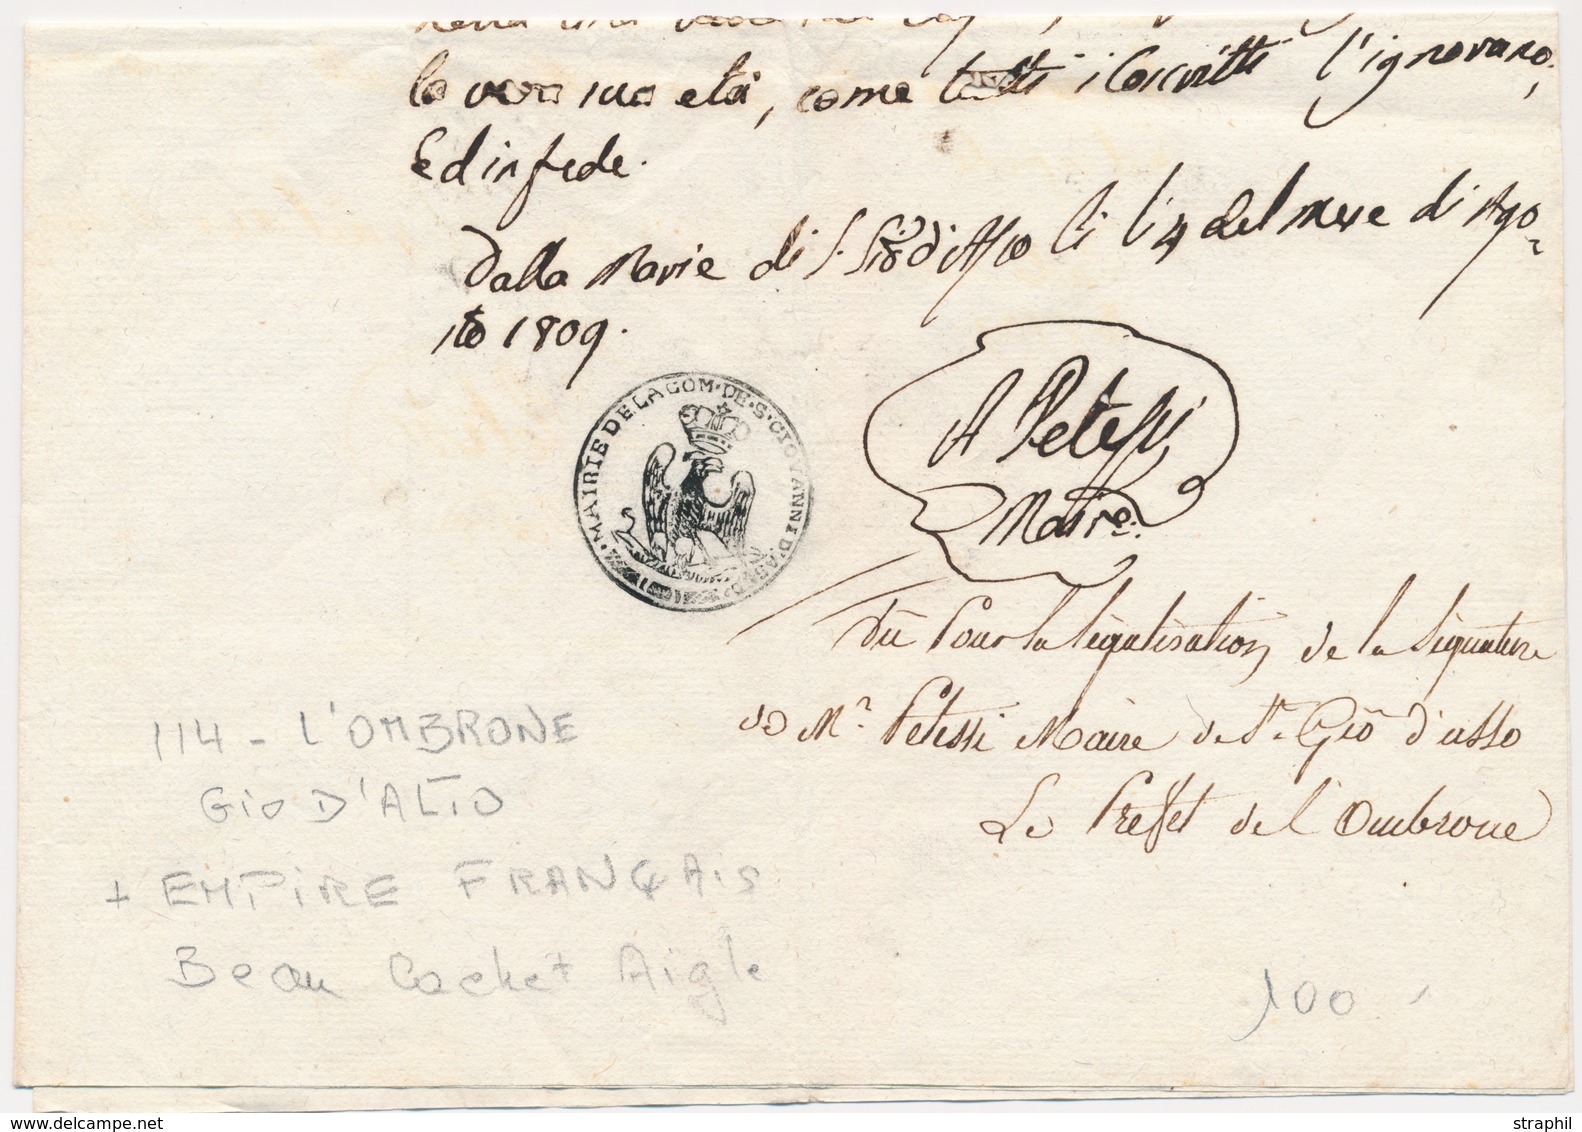 la vera sua età, come tutti i Coscritti l'ignorano,
Ed in fede.
Dalla Marie di S. Gio d'Asso li 14 del mese di Ago-
sto 1809.
MAIRIE DE LA COM. DE S. GIOVANNI D'ASSO
A Petessi
Maire
Vu Pour la légalisation de la Signature
de Mr. Petessi Maire de Sn Gio d'asso
Le Préfet de l'Ombrone
114 - L'OMBRONE
Gio D'ALTO
+ EMPIRE FRANÇAIS
Beau Cachet Aigle
100 -
straphil